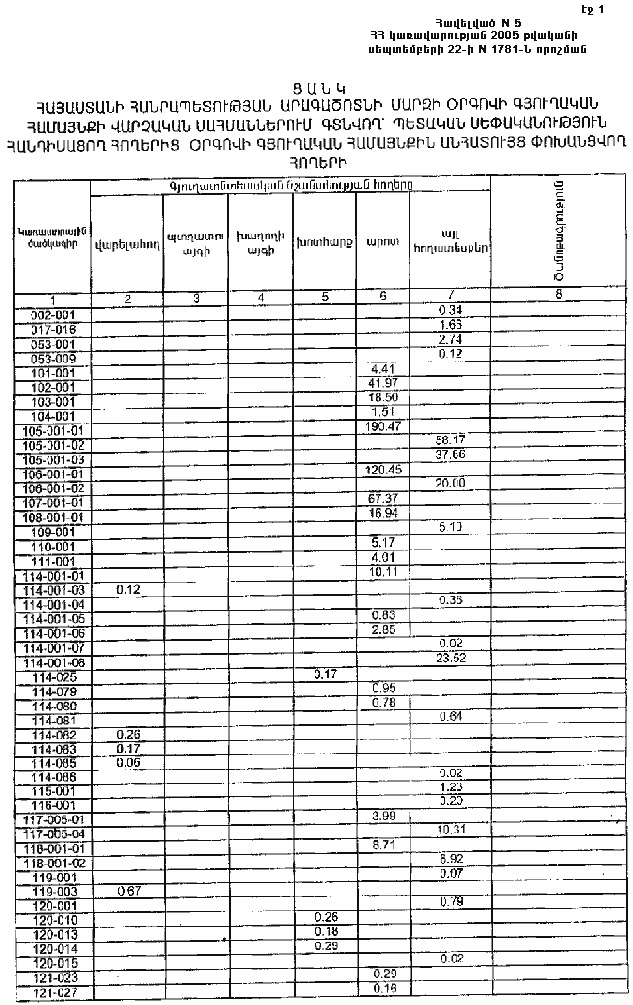 էջ 1
Հավելված N 5
ՀՀ կառավարության 2005 թվականի
սեպտեմբերի 22-ի N 1781-Ն որոշման
ՑԱՆԿ
ՀԱՅԱՍՏԱՆԻ ՀԱՆՐԱՊԵՏՈՒԹՅԱՆ ԱՐԱԳԱԾՈՏՆԻ ՄԱՐԶԻ ՕՐԳՈՎԻ ԳՅՈՒՂԱԿԱՆ
ՀԱՄԱՅՆՔԻ ՎԱՐՉԱԿԱՆ ՍԱՀՄԱՆՆԵՐՈՒՄ ԳՏՆՎՈՂ՝ ՊԵՏԱԿԱՆ ՍԵՓԱԿԱՆՈՒԹՅՈՒՆ
ՀԱՆԴԻՍԱՑՈՂ ՀՈՂԵՐԻՑ ՕՐԳՈՎԻ ԳՅՈՒՂԱԿԱՆ ՀԱՄԱՅՆՔԻՆ ԱՆՀԱՏՈՒՅՑ ՓՈԽԱՆՑՎՈՂ
ՀՈՂԵՐԻ
Գյուղատնտեսական նշանակության հողերը
Կադաստրային ծածկագիր վարելահող պտղատու այգի խաղողի այգի խոտհարք արոտ այլ հողատեսքեր Ծանոթագրություն
1 2 3 4 5 6 7 8
002-001 0.34
017-016 1.66
053-001 2.74
053-009 0.12
101-001 4.41
102-001 41.97
103-001 18.50
104-001 1.51
105-001-01 190.47
105-001-02 58.17
105-001-03 37.66
106-001-01 120.45
106-001-02 20.00
107-001-01 67.37
108-001-01 16.94
109-001 5.13
110-001 5.17
111-001 4.01
114-001-01 10.11
114-001-03 0.12
114-001-04 0.36
114-001-05 0.83
114-001-06 2.85
114-001-07 0.02
114-001-08 23.52
114-025 0.17
114-079 0.95
114-080 0.78
114-081 0.64
114-082 0.26
114-083 0.17
114-085 0.05
114-086 0.02
115-001 1.23
116-001 0.20
117-005-01 3.99
117-005-04 10.31
118-001-01 8.71
118-001-02 8.92
119-001 0.07
119-003 0.67
120-001 0.79
120-010 0.26
120-013 0.18
120-014 0.29
120-015 0.02
121-023 0.29
121-027 0.16